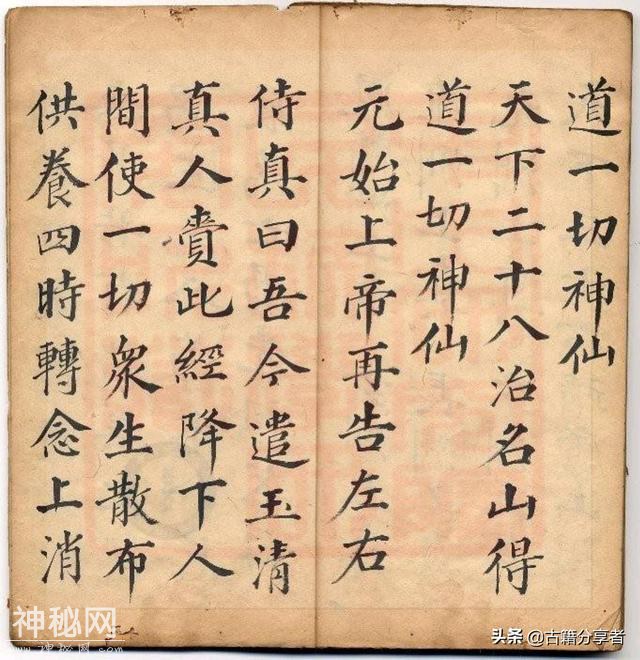 道一切神仙
天下二十八治名山得
道一切神仙
元始上帝再告左右
侍真曰吾今遣玉清
真人賷此經降下人
間使一切衆生散布
供養四時轉念上消
神秘网
头条 @古籍分享者